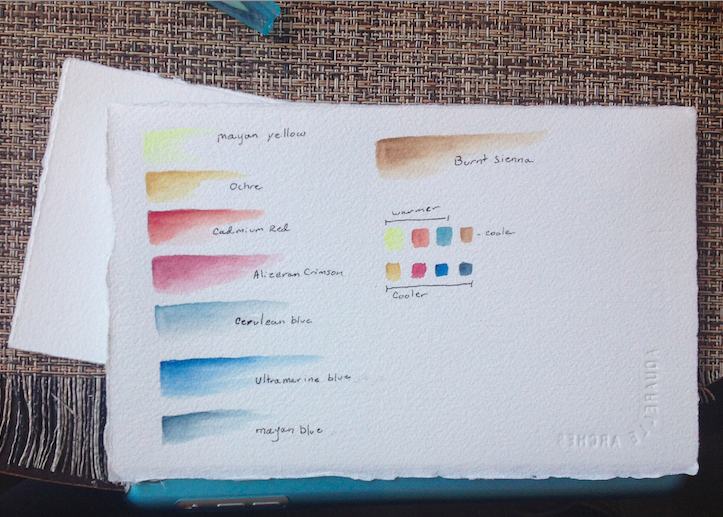 mayan yellow
Ochre
Cadmium Red
Alizeran Crimson
Cerulean blue
Ultramarine blue
mayan blue
Burnt Sienna
warmer
- cooler
Cooler
AQUARELLE ARCHES